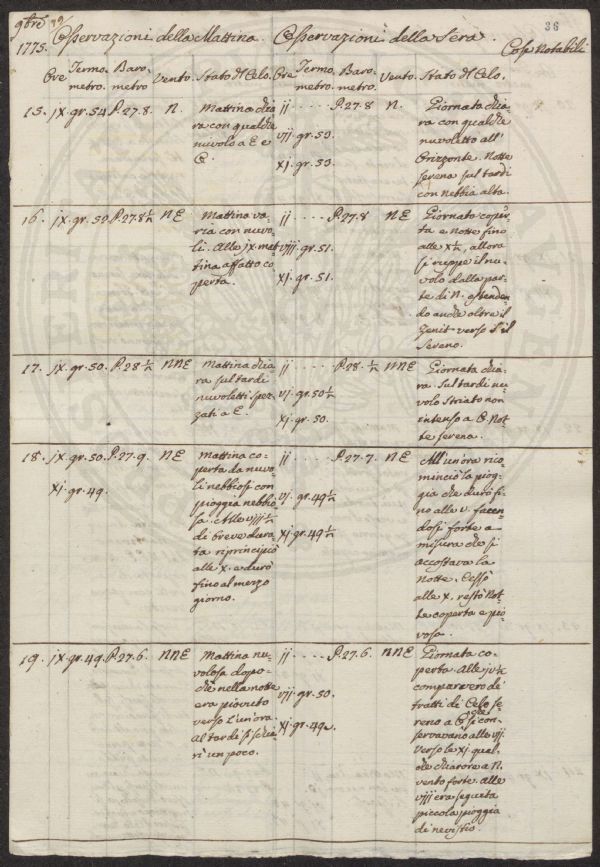 9bre
36
1775. Osservazioni della Mattina. Osservazioni della Sera.
Cose Notabili
Ore Termo- Baro- Vento. Stato del Celo. Ore Termo- Baro- Vento. Stato del Celo.
metro. metro metro. metro.
15. jx. gr. 54 P. 27.8. N. Mattina chia
ra con qualche
nuvolo a E e
O.
ij ····· P. 27.8 N. Giornata chia
vij. gr. 53. ra con qualche
nuvoletto all'
xj. gr. 53. Orizzonte. Notte
serena sul tardi
con nebbia alta.
16. jx. gr. 52 P. 27.8½ NE Mattina va
ria con nuvo
li. Alle jx. mat
tina affatto co
perta.
ij ····· P. 27.8 NE Giornata coper
ta e notte fino
viij. gr. 51. alle X½, allora
si ruppe il nu
xj. gr. 51. volo dalla par
te di N. estenden
do anche oltre il
Zenit verso S il
Sereno.
17. jx. gr. 50. P. 28½ NNE Mattina chia
ra sul tardi
nuvoletti sper
zati a E.
ij ····· P. 28.½ NNE Giornata chia
ra. Sul tardi nu
vj. gr. 50½ volo striato non
intenso a O. Not
xj. gr. 50. te serena.
18. jx. gr. 50. P. 27.9. NE Mattina co
perta da nuvo
xj. gr. 49. li nebbiosi con
pioggia nebbio
sa. Alle viij½
di breve dura
ta riprincipiò
alle X. e durò
fino al mezzo
giorno.
ij ····· P. 27.7. NE All'un'ora rico
minciò la piog
vj. gr. 49½ gia che durò fi
no alle v. facen
xj. gr. 49½ dosi forte a
misura che si
accostava la
notte. Cessò
alle X, restò Not
te coperta e pio
vosa.
19. jx. gr. 49. P. 27.6. NNE Mattina nu
volosa dopo
chè nella notte
era piovuto
verso l'un'ora.
Al tardi si schia
rì un poco.
ij ····· P. 27.6. NNE Giornata co
perta. Alle jv½
comparvero de'
vij. gr. 50. tratti di Celo se
reno a O che si con
xj. gr. 49. servavano alle vij
verso le xj qual
che chiarore a N.
vento forte. alle
viij era seguita
piccola pioggia
di nevistio.